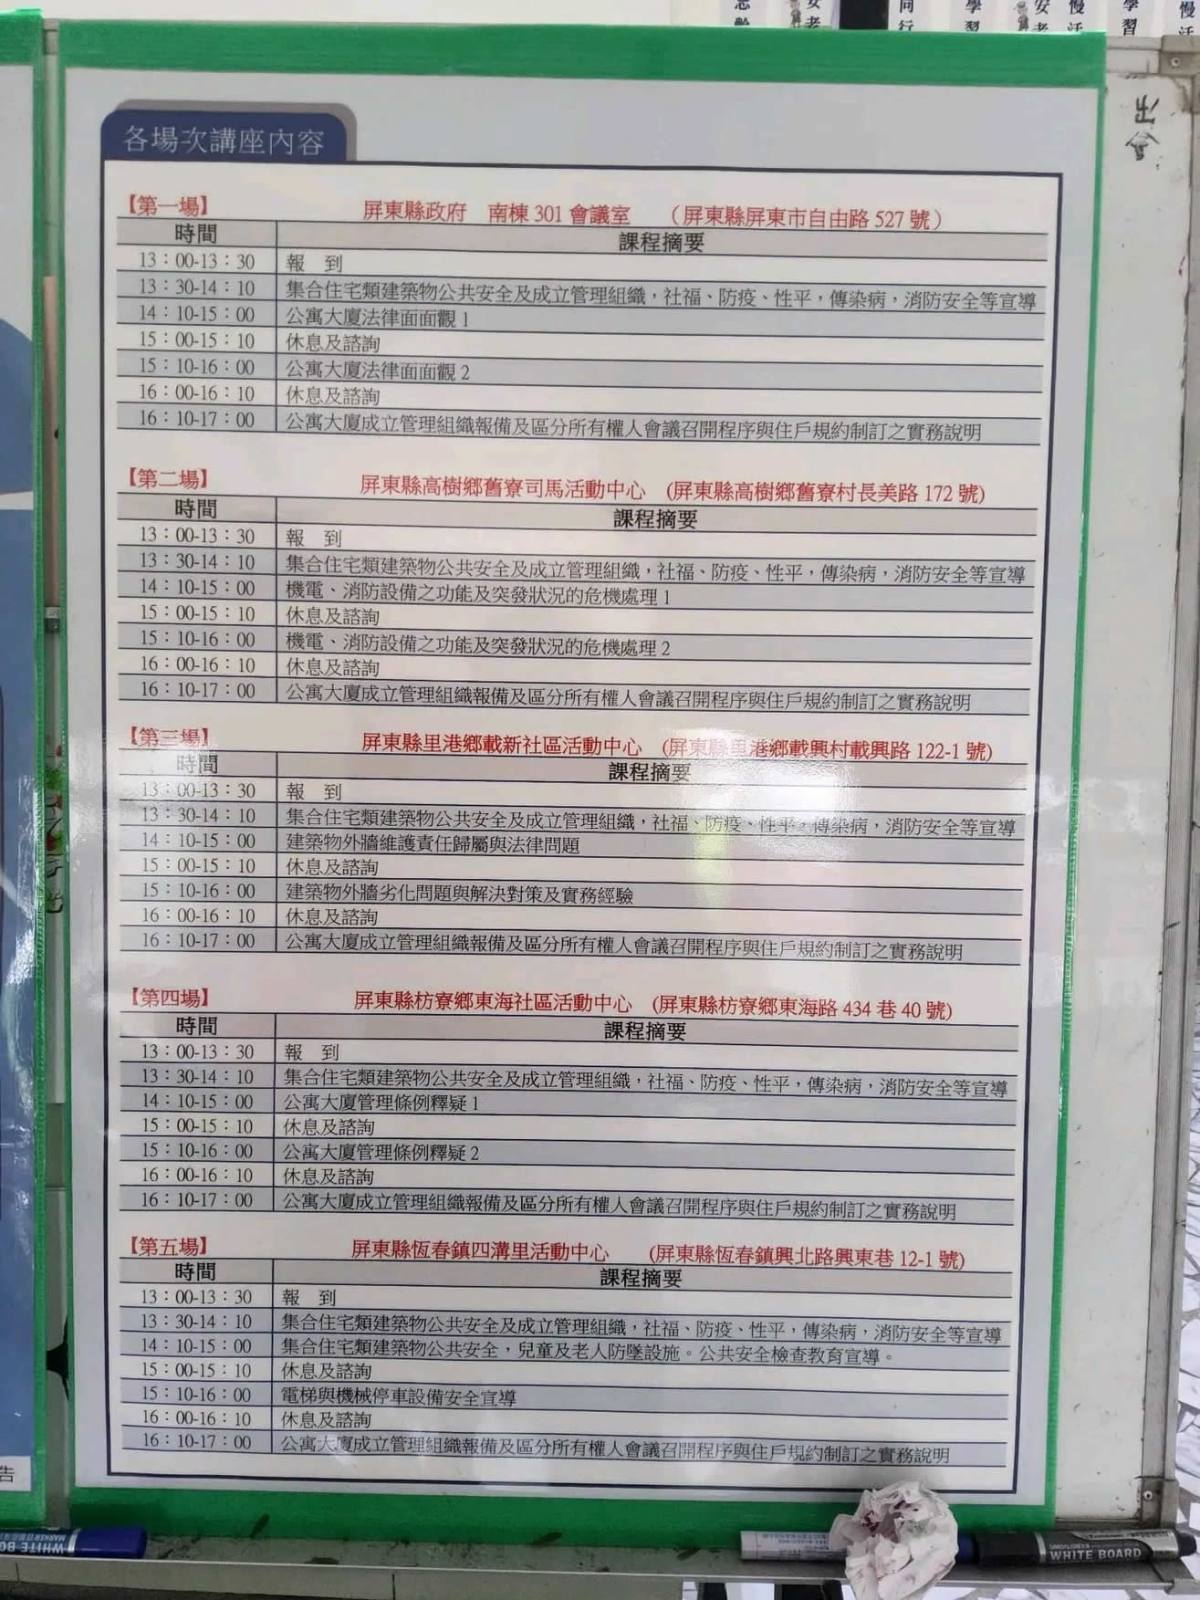 各場次講座內容
【第一場】 屏東縣政府 南棟 301 會議室 （屏東縣屏東市自由路 527 號）
時間 課程摘要
13：00-13：30 報 到
13：30-14：10 集合住宅類建築物公共安全及成立管理組織，社福、防疫、性平，傳染病，消防安全等宣導
14：10-15：00 公寓大廈法律面面觀 1
15：00-15：10 休息及諮詢
15：10-16：00 公寓大廈法律面面觀 2
16：00-16：10 休息及諮詢
16：10-17：00 公寓大廈成立管理組織報備及區分所有權人會議召開程序與住戶規約制訂之實務說明
【第二場】 屏東縣高樹鄉舊寮司馬活動中心 (屏東縣高樹鄉舊寮村長美路 172 號)
時間 課程摘要
13：00-13：30 報 到
13：30-14：10 集合住宅類建築物公共安全及成立管理組織，社福、防疫、性平，傳染病，消防安全等宣導
14：10-15：00 機電、消防設備之功能及突發狀況的危機處理 1
15：00-15：10 休息及諮詢
15：10-16：00 機電、消防設備之功能及突發狀況的危機處理 2
16：00-16：10 休息及諮詢
16：10-17：00 公寓大廈成立管理組織報備及區分所有權人會議召開程序與住戶規約制訂之實務說明
【第三場】 屏東縣里港鄉載新社區活動中心 (屏東縣里港鄉載興村載興路 122-1 號)
時間 課程摘要
13：00-13：30 報 到
13：30-14：10 集合住宅類建築物公共安全及成立管理組織，社福、防疫、性平，傳染病，消防安全等宣導
14：10-15：00 建築物外牆維護責任歸屬與法律問題
15：00-15：10 休息及諮詢
15：10-16：00 建築物外牆劣化問題與解決對策及實務經驗
16：00-16：10 休息及諮詢
16：10-17：00 公寓大廈成立管理組織報備及區分所有權人會議召開程序與住戶規約制訂之實務說明
【第四場】 屏東縣枋寮鄉東海社區活動中心 (屏東縣枋寮鄉東海路 434 巷 40 號)
時間 課程摘要
13：00-13：30 報 到
13：30-14：10 集合住宅類建築物公共安全及成立管理組織，社福、防疫、性平，傳染病，消防安全等宣導
14：10-15：00 公寓大廈管理條例釋疑 1
15：00-15：10 休息及諮詢
15：10-16：00 公寓大廈管理條例釋疑 2
16：00-16：10 休息及諮詢
16：10-17：00 公寓大廈成立管理組織報備及區分所有權人會議召開程序與住戶規約制訂之實務說明
【第五場】 屏東縣恆春鎮四溝里活動中心 (屏東縣恆春鎮興北路興東巷 12-1 號)
時間 課程摘要
13：00-13：30 報 到
13：30-14：10 集合住宅類建築物公共安全及成立管理組織，社福、防疫、性平，傳染病，消防安全等宣導
14：10-15：00 集合住宅類建築物公共安全，兒童及老人防墜設施。公共安全檢查教育宣導。
15：00-15：10 休息及諮詢
15：10-16：00 電梯與機械停車設備安全宣導
16：00-16：10 休息及諮詢
16：10-17：00 公寓大廈成立管理組織報備及區分所有權人會議召開程序與住戶規約制訂之實務說明
告
WHITE BOARD